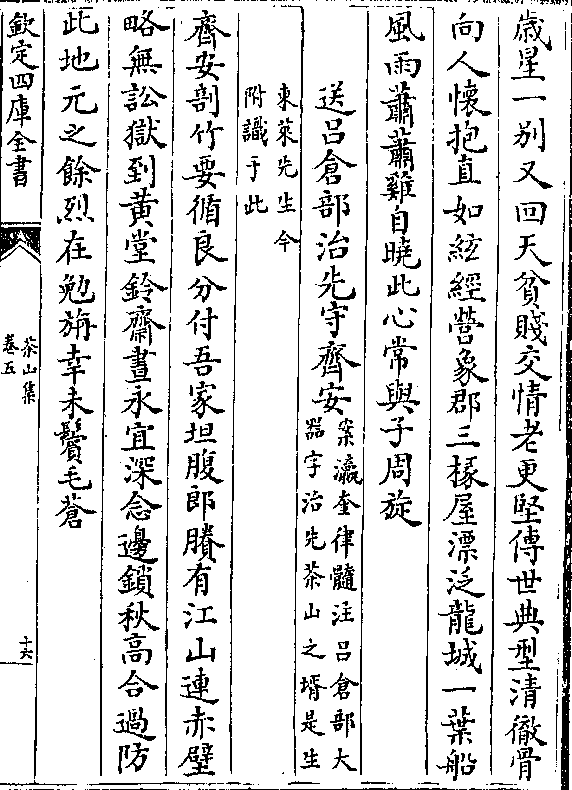 歳星一别又回天貧賤交情老更堅傳世典型清徹骨
向人懷抱直如絃經營象郡三椽屋漂泛龍城一葉船
風雨蕭蕭雞自曉此心常與子周旋
送吕倉部治先守齊安
案瀛奎律髓注吕倉部大
器字治先茶山之壻是生
東萊先生今
附識于此
齊安剖竹要循良分付吾家坦腹郎賸有江山連赤壁
略無訟獄到黄堂鈴齋晝永宜深念邊鎖秋高合過防
此地元之餘烈在勉旃幸未鬢毛蒼
欽定四庫全書
茶山集
卷五
十六